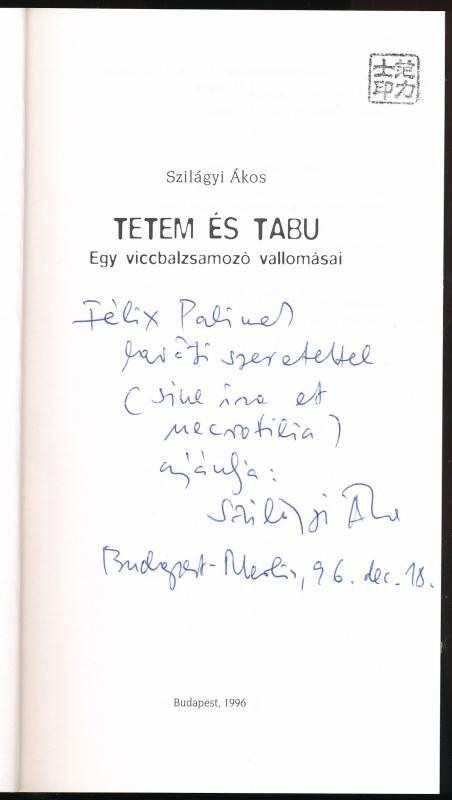 范力
士印
Szilágyi Ákos
TETEM ÉS TABU
Egy viccbalzsamozó vallomásai
Félix Palinak
baráti szeretettel
(sine ira et
necrofilia)
ajánlja:
Szilágyi Ákos
Budapest-Merlin, 96. dec. 18.
Budapest, 1996